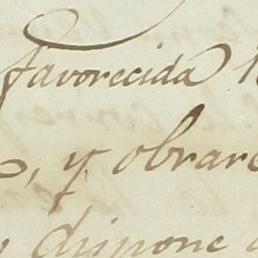 favorecida
, y obrar
dispone